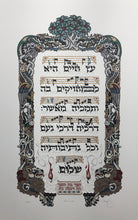 עץ חיים היא
למחזיקים בה
ותמכיה מאשר:
דרכיה דרכי נעם
וכל נתיבותיה
שלום